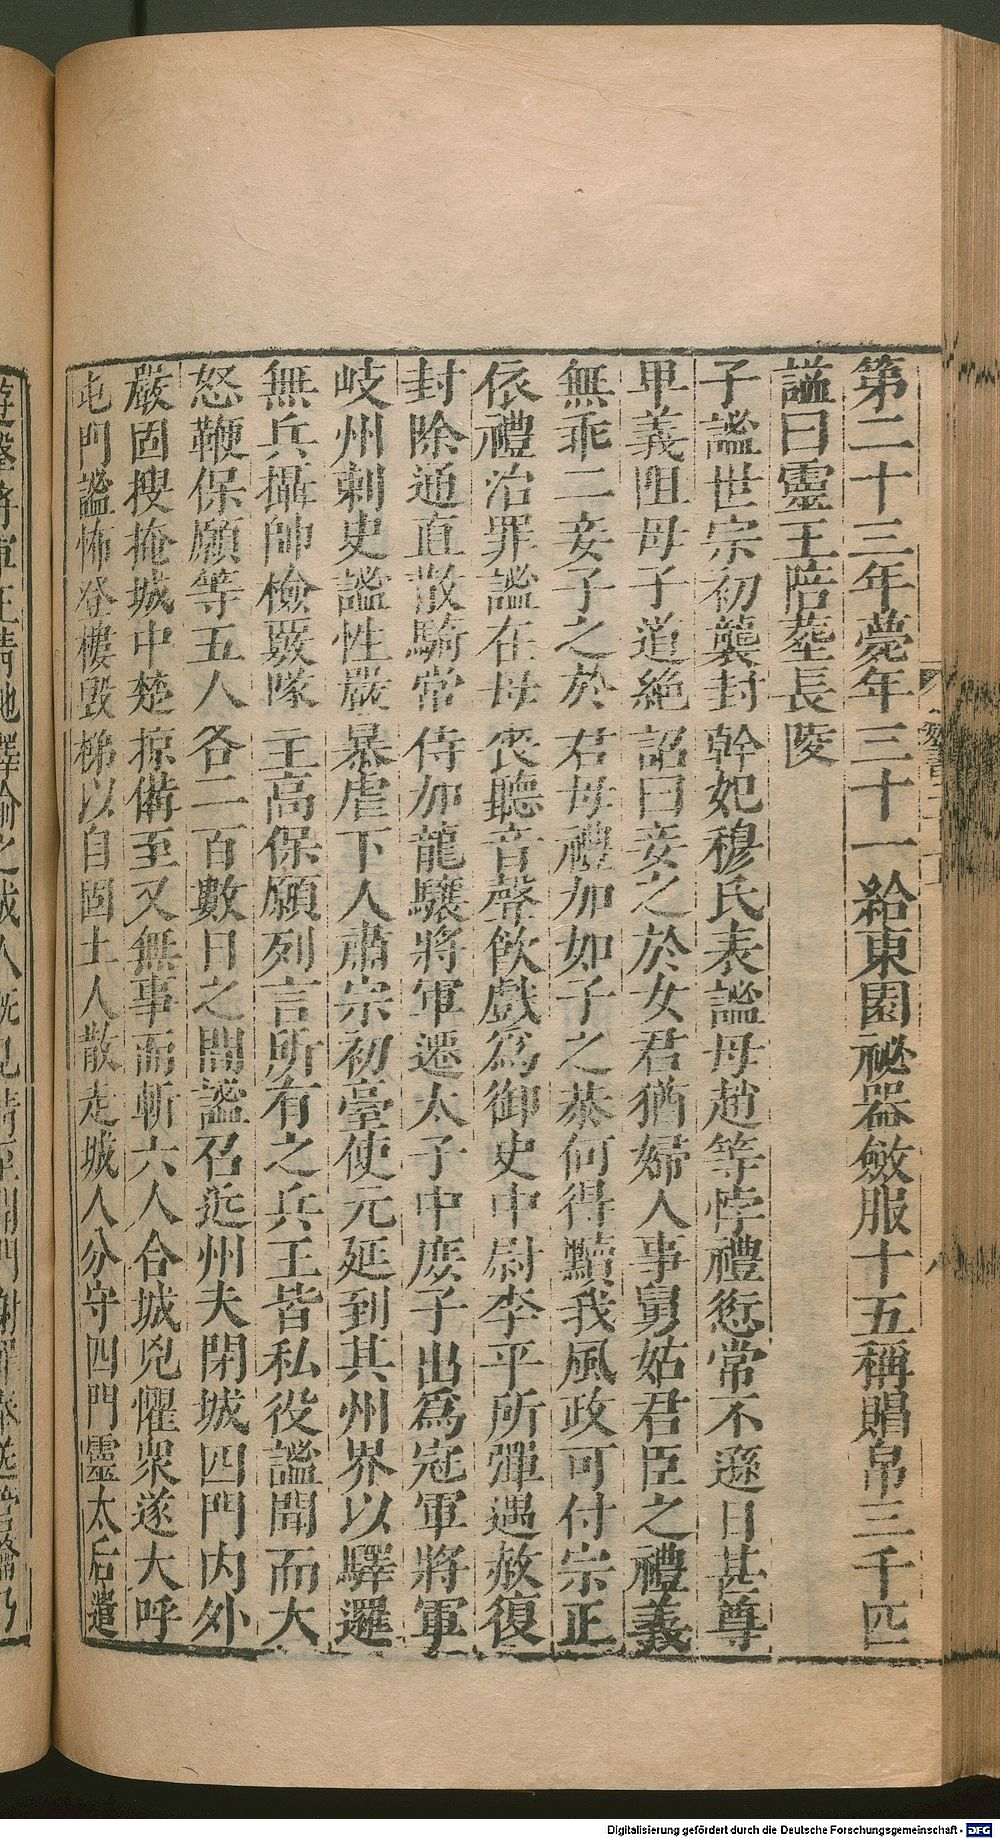 第二十三年薨年三十一給東園祕器斂服十五稱賵帛三千匹
謚曰靈王陪葬長陵
子謐世宗初襲封幹妃穆氏表謐母趙等悖禮愆常不遜日甚尊
卑義阻母子道絕詔曰妾之於女君猶婦人事舅姑君臣之禮義
無乖二妾子之於君母禮加如子之恭何得黷我風政可付宗正
依禮治罪謐在母喪聽音聲飲戲為御史中尉李平所彈遇赦復
封除通直散騎常侍加龍驤將軍遷太子中庶子出為冠軍將軍
岐州刺史謐性嚴暴虐下人肅宗初臺使元延到其州界以驛邏
無兵攝帥檢覈隊主高保願列言所有之兵王皆私役謐聞而大
怒鞭保願等五人各二百數日之間謐召近州夫閉城四門內外
嚴固搜掩城中楚掠備至又無事而斬六人合城兇懼眾遂大呼
屯門謐怖登樓毀梯以自固土人散走城人分守四門靈太后遣
Digitalisierung gefördert durch die Deutsche Forschungsgemeinschaft - DFG